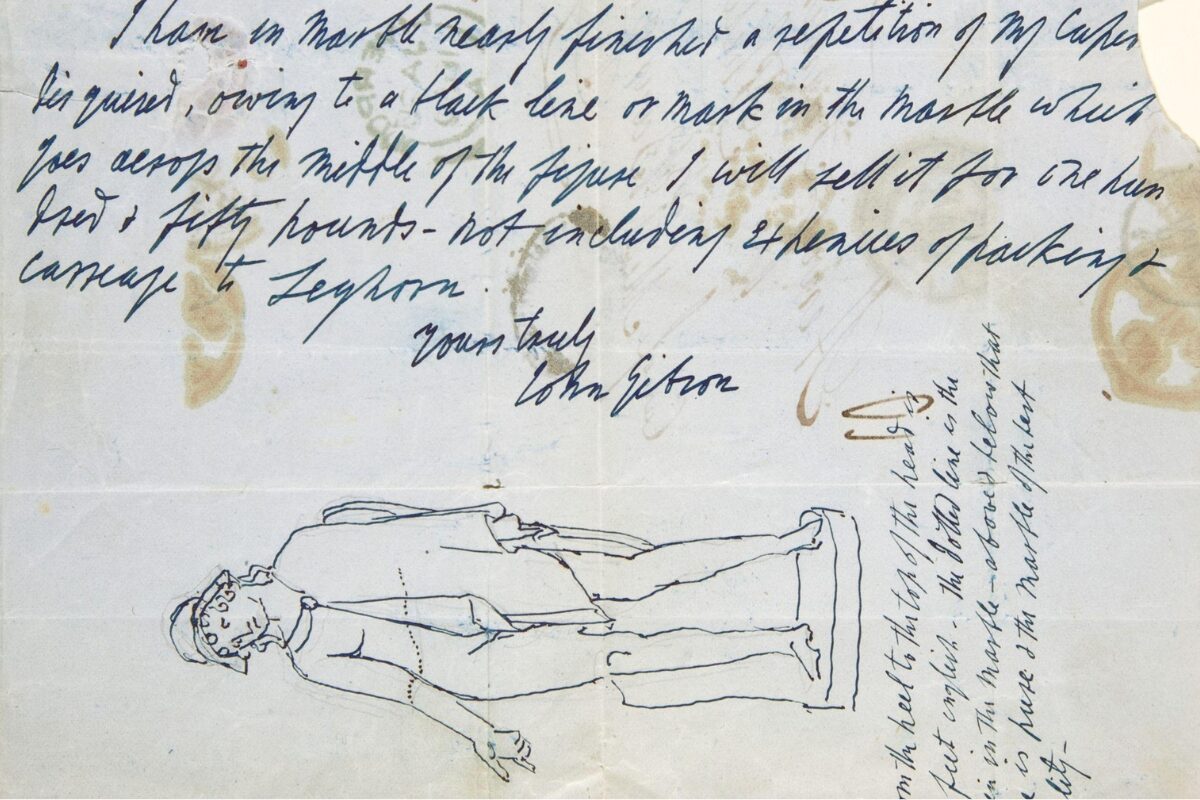 I have in marble nearly finished a repetition of my Cupid
disguised, owing to a black line or mark in the marble which
goes across the middle of the figure I will sell it for one hun
dred & fifty pounds - not including expenses of packing &
carreage to Leghorn.
yours truly
John Gibson
om the heel to the top of the head is
feet english - the dotted line is the
in in the marble - above & below that
e is pure & the marble of the best
lity -